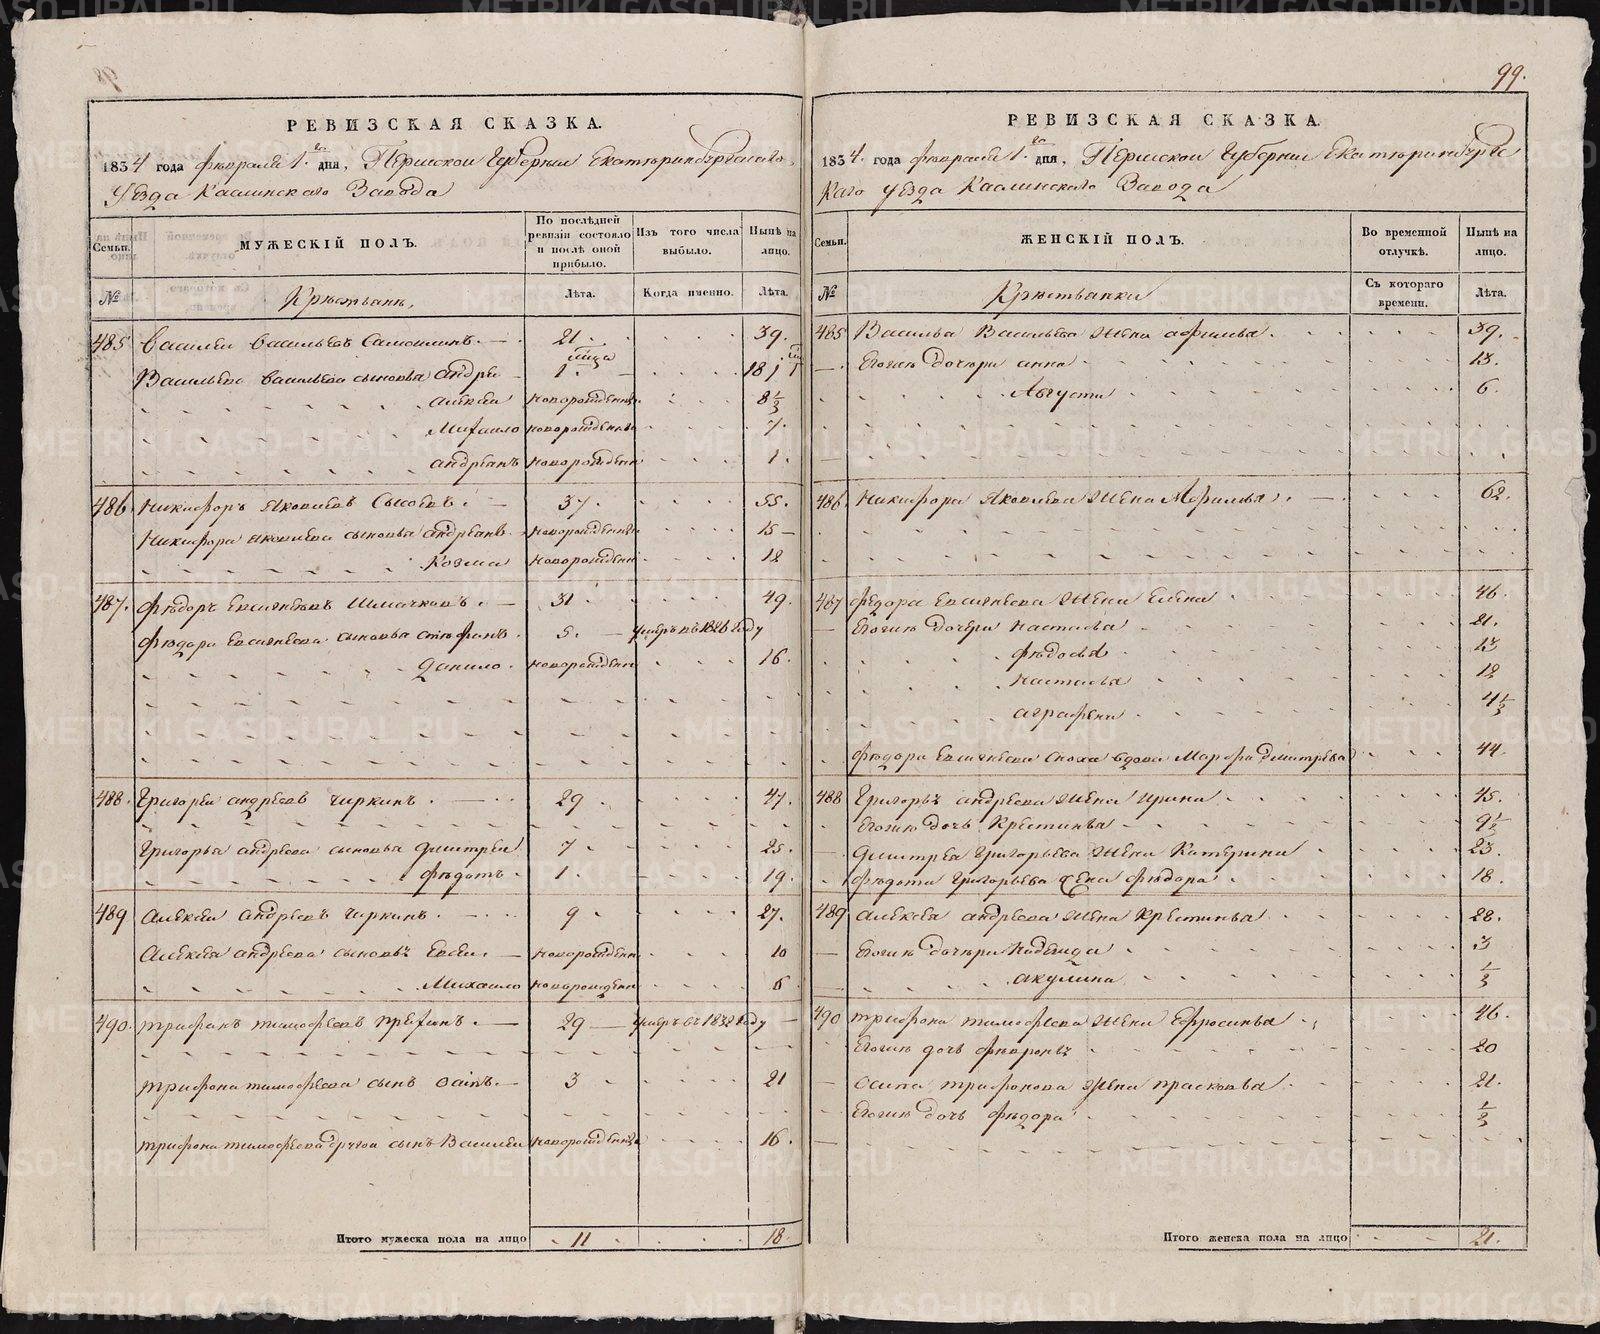 99.
РЕВИЗСКАЯ СКАЗКА.
1834 года февраля 1го дня, Пермской Губернии Екатеринбургскаго
Уезда Каслинскаго Завода
Семьи. МУЖЕСКІЙ ПОЛЪ. По послѣдней ревизіи состояло и послѣ оной прибыло. Изъ того числа выбыло. Нынѣ на лицо.
№ Крестьянъ. Лѣта. Когда именно. Лѣта.
485 Василей Васильевъ 21. 39.
Василья Васильева сыновья Андрей 1.
Алексѣй новорожденн 8½
Михаило новорожденн 7.
Андреанъ новорожденн 1.
486 Никифоръ Яковлевъ Сысоевъ. 37. 55.
Никифора Яковлева сыновья Андреанъ новорожденн 15
Козма новорожденн 12
487. Федоръ Евсигнеевъ 31 49.
Федора Евсигнеева сыновья Стефанъ. 5. умеръ въ 1826 году
Данило. новорожденн 16.
488. Григорей Андреевъ Чиркинъ. 29 47.
Григорья Андреева сыновья Дмитрей 7 25.
Федотъ. 1. 19.
489 Алексей Андреевъ Чиркинъ. 9 27.
Алексея Андреева сыновья новорожденн 10
Михаило новорожденн 6
490. Трифонъ Тимофеевъ 29 умеръ въ 1832 году
Трифона Тимофеева сынъ Осипъ. 3 21
Трифона Тимофеева другой сынъ Василей новорожденн 16.
Итого мужеска пола на лицо 11 18.
РЕВИЗСКАЯ СКАЗКА.
1834. года февраля 1го дня, Пермской Губернии Екатеринбургс
каго уезда Каслинскаго Завода
Семьи. ЖЕНСКІЙ ПОЛЪ. Во временной отлучкѣ. Нынѣ на лицо.
№ Крестьянки Съ котораго времени. Лѣта.
485 Василья Васильева жена Афимья. 39.
Егожъ дочери Анна 13.
Августа 6.
486. Никифора Яковлева жена 62.
487 Федора Евсигнеева жена Елена 46.
Егожъ дочери Настасья 21.
Федосья 13
Настасья 12
Аграфена 4½
Федора Евсигнеева сноха вдова Марфа Дмитрева 44.
488 Григорья Андреева жена Ирина 45.
Егожъ дочь Крестинья 9½
Дмитрея Григорьева жена Катерина 23.
Федота Григорьева жена Федора 18.
489 Алексея Андреева жена Крестинья 28.
Егожъ дочери Надежда 3
Акулина ½
490 Трифона Тимофеева жена Ефросинья 46.
Егожъ дочь 20
Осипа Трифонова жена Прасковья 21.
Егожъ дочь Федора ½
Итого женска пола на лицо 21.
METRIKI.GASO-URAL.RU